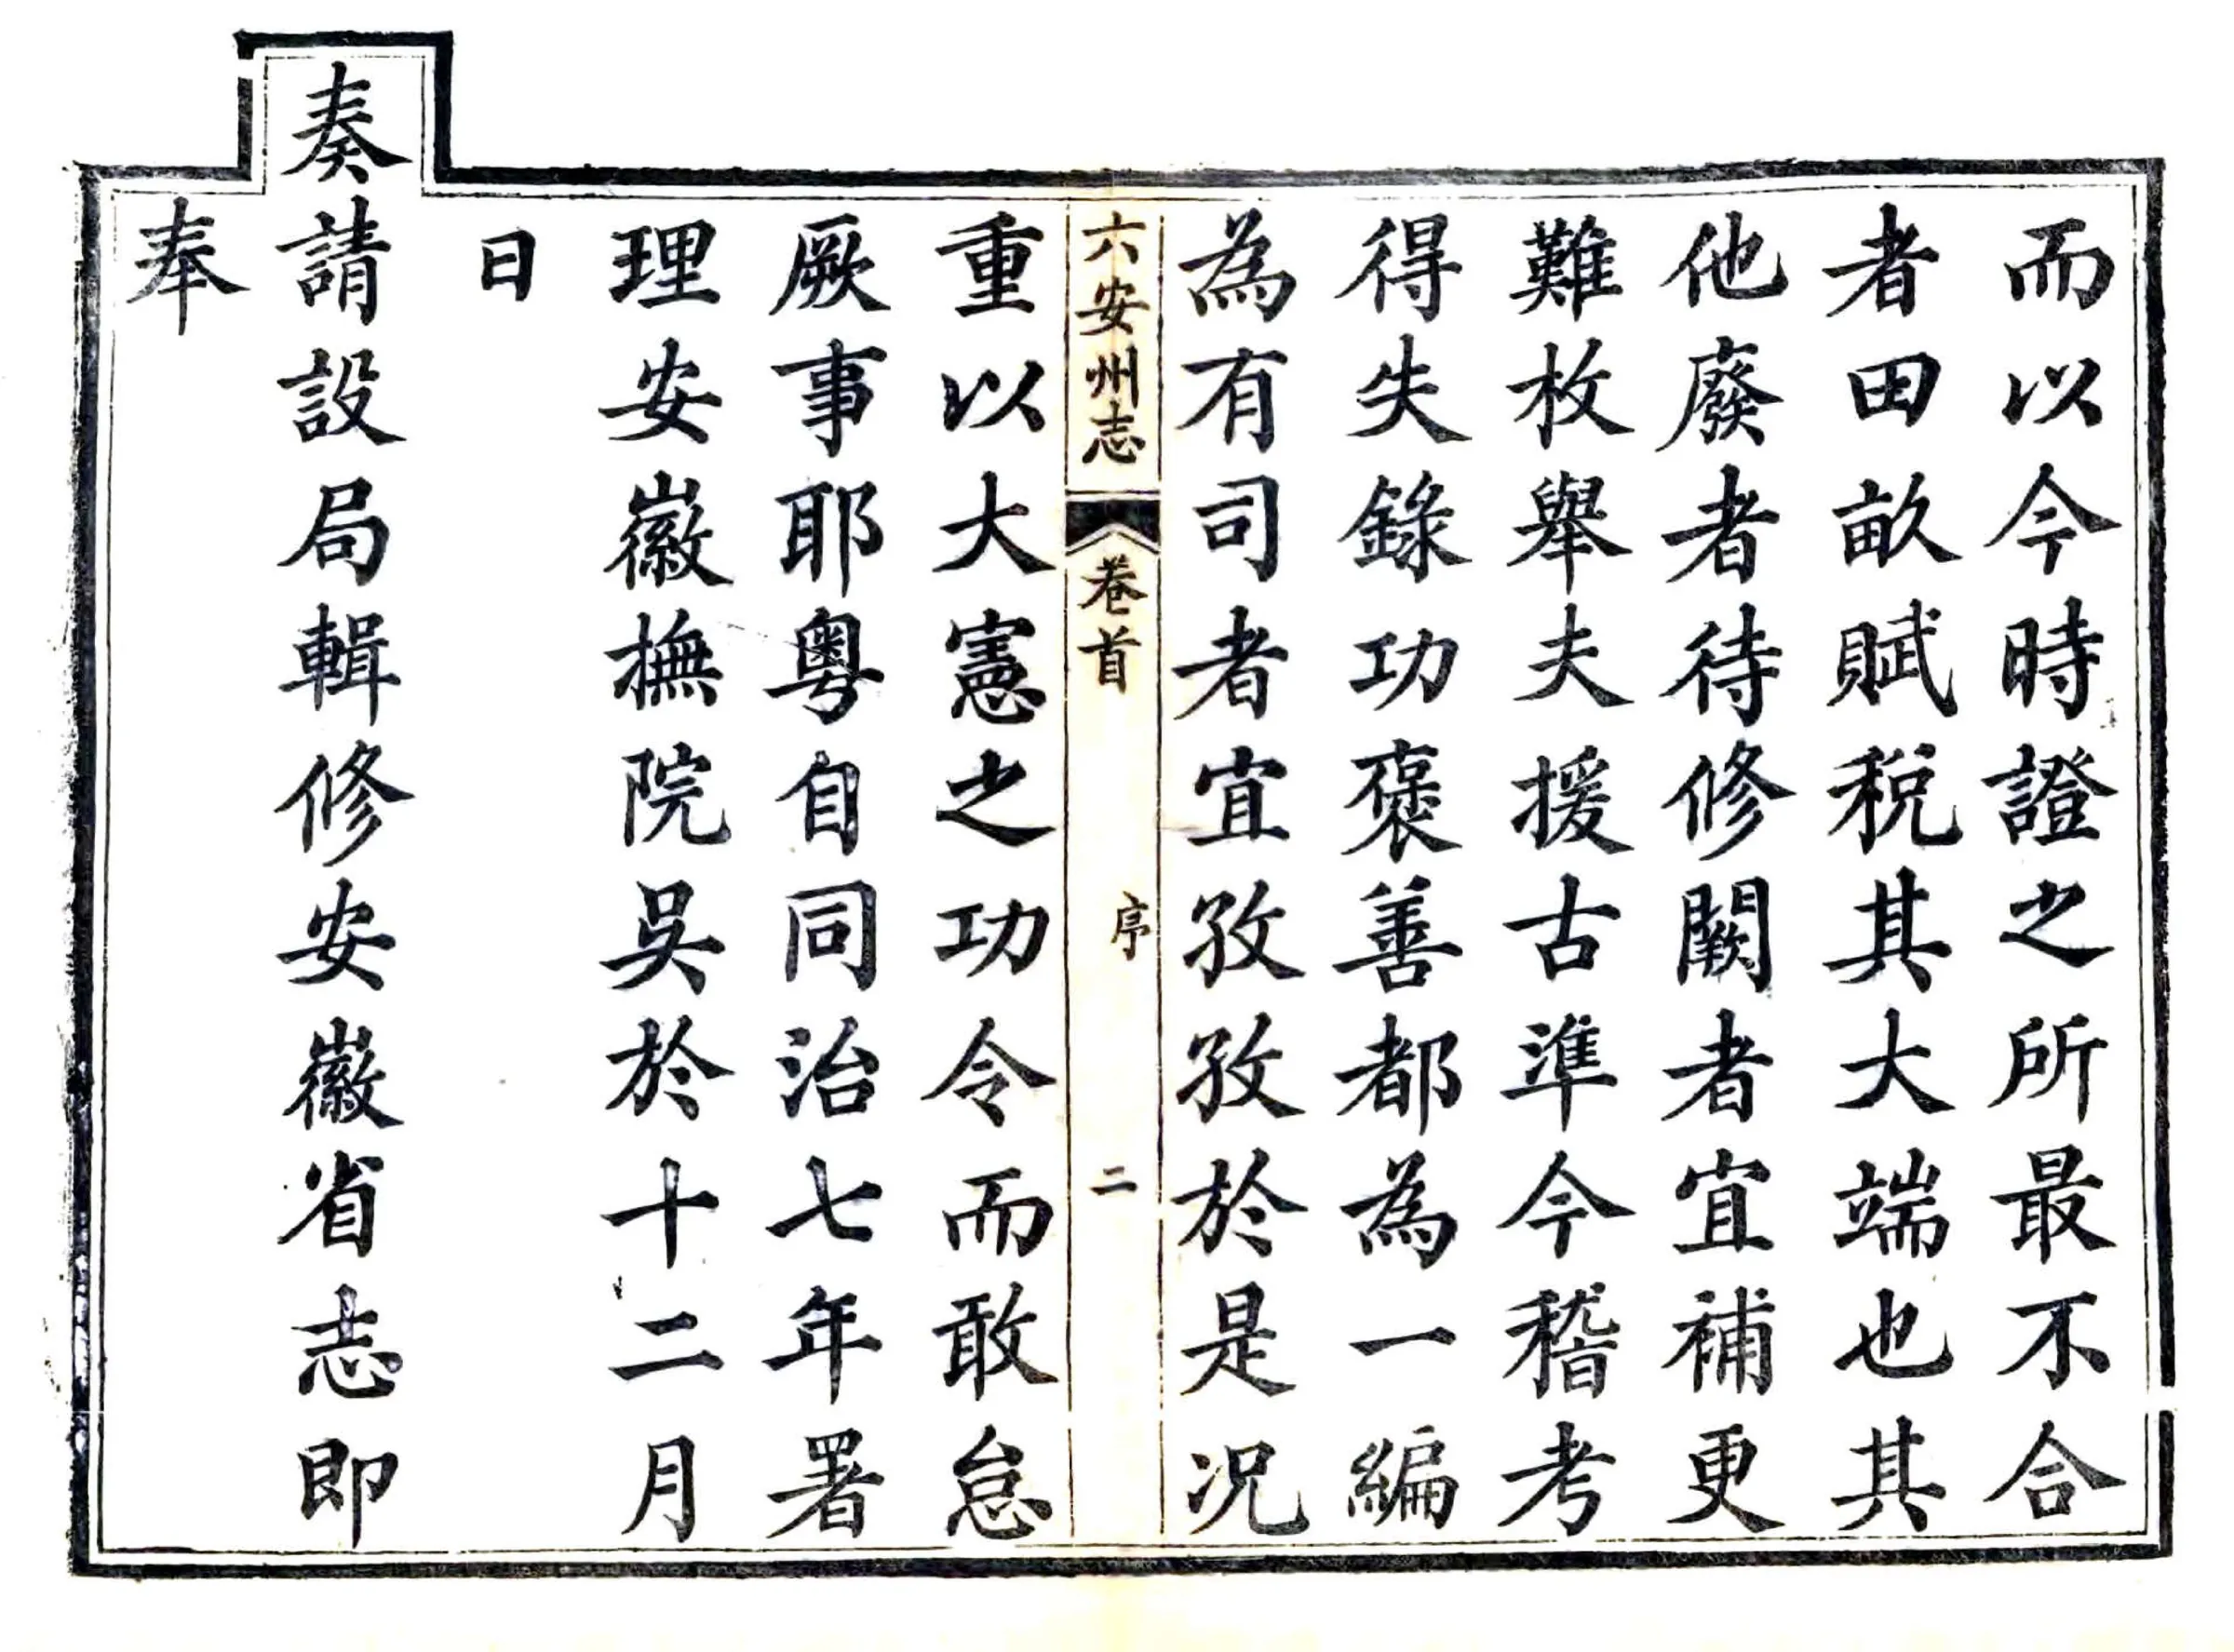 而以今時證之所最不合
者田畝賦税其大端也其
他廢者待修闕者宜補更
難枚舉夫援古準今稽考
得失錄功褒善都為一編
為有司者宜孜孜於是况
六安州志 卷首 序 二
重以大憲之功令而敢怠
厥事耶粤自同治七年署
理安徽撫院吳於十二月
日
奏請設局輯修安徽省志即
奉